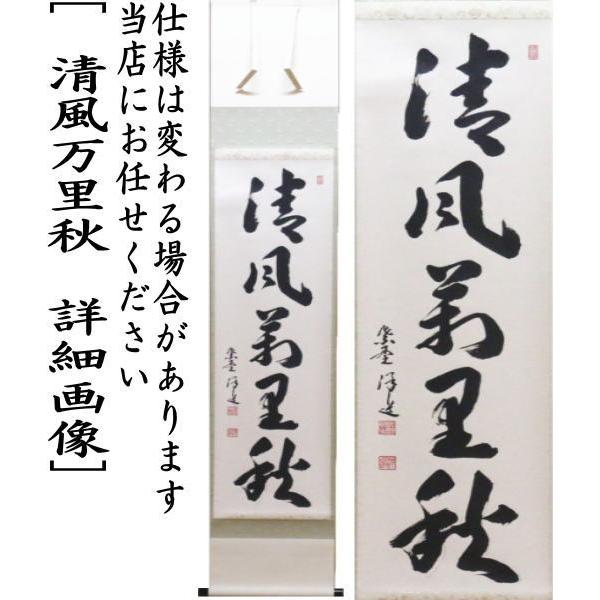 仕様は変わる場合があります
当店にお任せください
[清風万里秋 詳細画像]
清風萬里秋
清風萬里秋